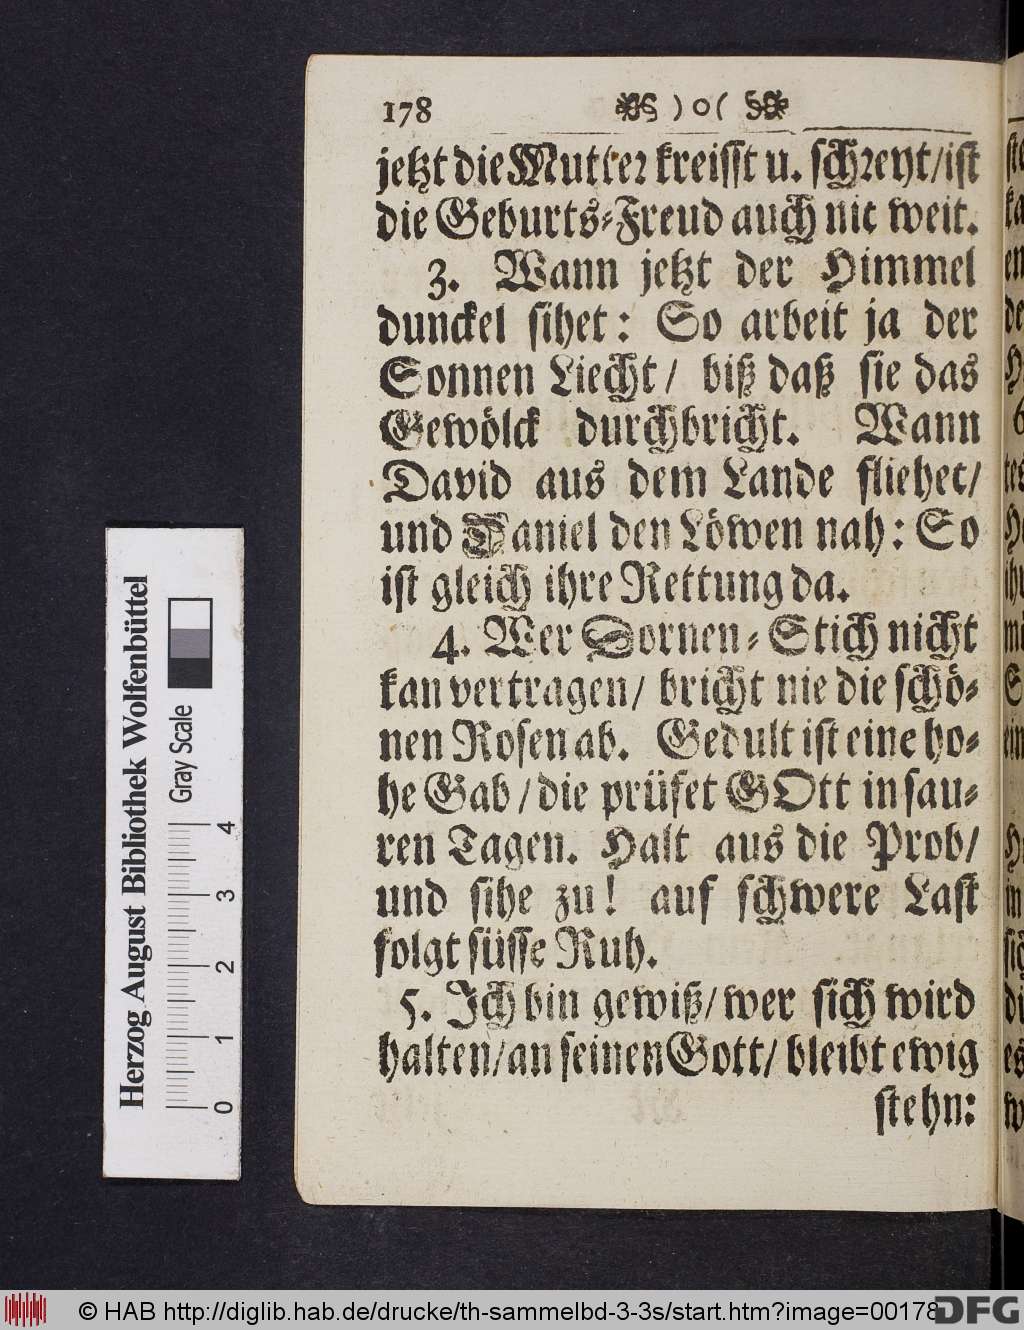 178 )o(
jetzt die Mutter kreisst u. schreyt/ist
die Geburts-Freud auch nit weit.
3. Wann jetzt der Himmel
dunckel sihet: So arbeit ja der
Sonnen Liecht/ biß daß sie das
Gewölck durchbricht. Wann
David aus dem Lande fliehet/
und Daniel den Löwen nah: So
ist gleich ihre Rettung da.
4. Wer Dornen-Stich nicht
kan vertragen/ bricht nie die schö-
nen Rosen ab. Gedult ist eine ho-
he Gab/die prüfet GOtt in sau-
ren Tagen. Halt aus die Prob/
und sihe zu! auf schwere Last
folgt süsse Ruh.
5. Ich bin gewiß/wer sich wird
halten/an seinen Gott/ bleibt ewig
stehn:
Herzog August Bibliothek Wolfenbüttel
Gray Scale
0 1 2 3 4
© HAB http://diglib.hab.de/drucke/th-sammelbd-3-3s/start.htm?image=00178
DFG